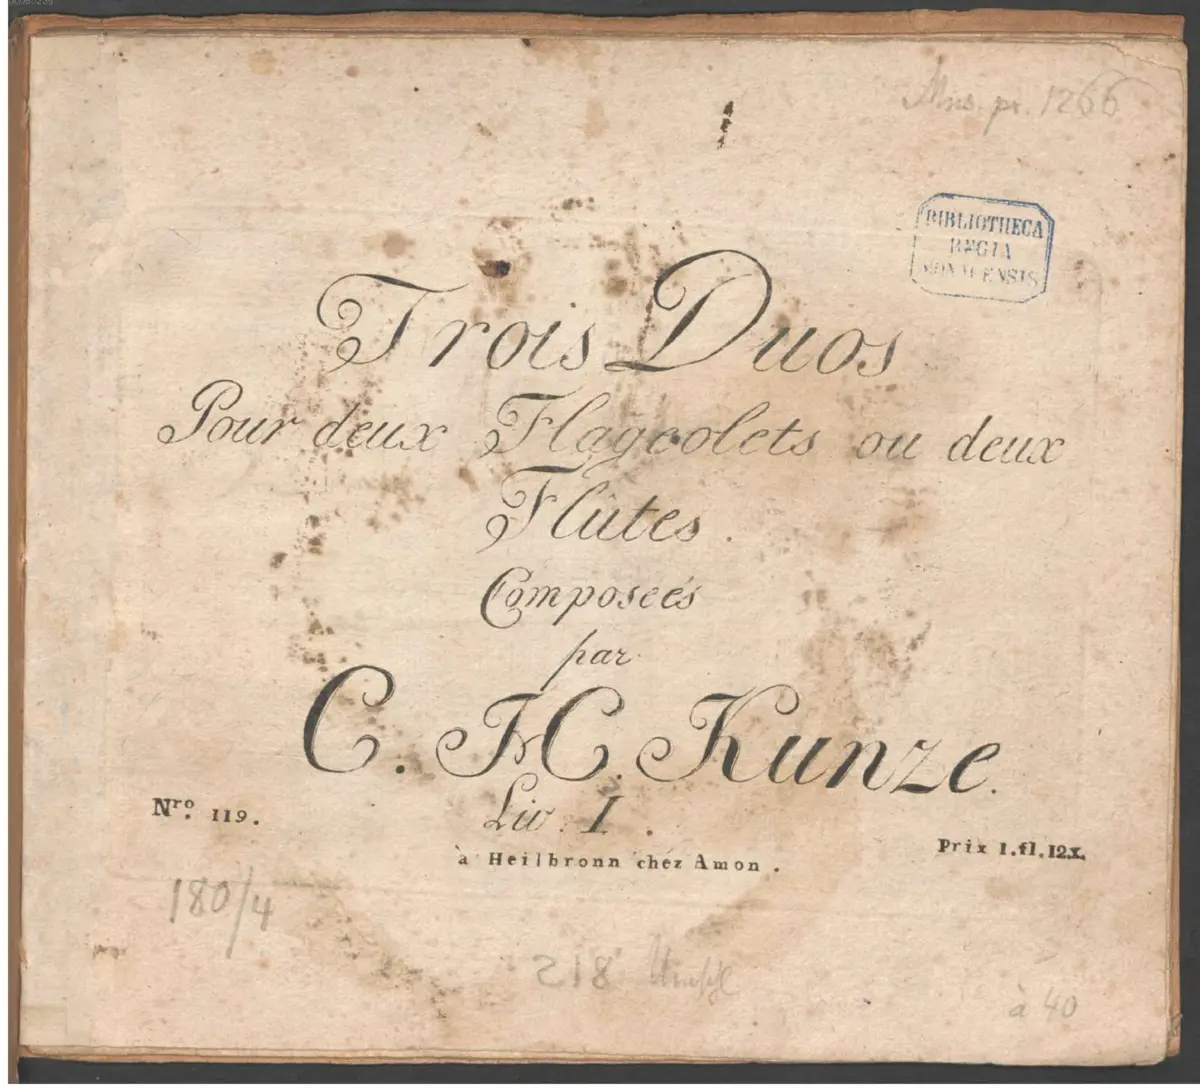 Mus. pr. 1266
BIBLIOTHECA
REGIA
MONACENSIS
Trois Duos
Pour deux Flageolets ou deux
Flûtes.
Composeés
par
C. H. Kunze.
Liv. I.
Nro. 119.
à Heilbronn chez Amon.
Prix 1.fl.12x.
180/4
218
à 40